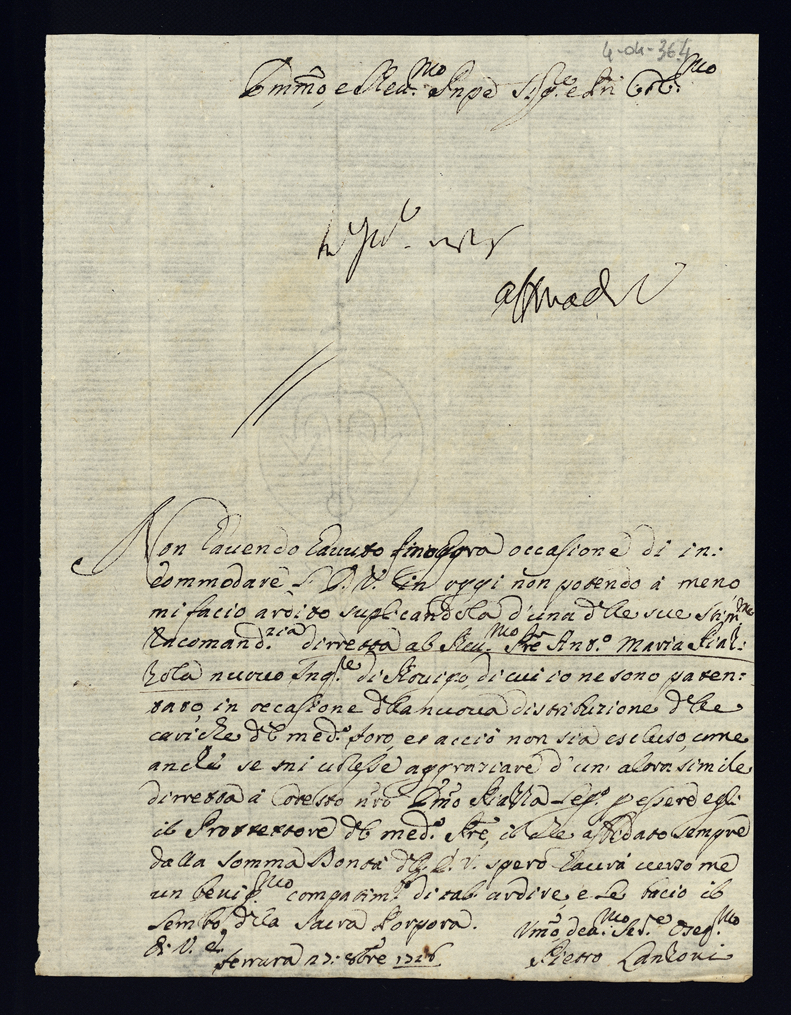 4-04-364
Emmo, e Reu.mo Snpe Sig.e e Pn Col.mo
Non hauendo hauuto finohora occasione di in:
commodare S. D. V. in oggi non potendo à meno
mi facio ardito suplicandola d'una dlle sue Stim.me
Racomand.zia dirretta al Reu.mo Pre Ant.o Maria
nuouo Inq.re di Rouigo, di cui io ne sono paten:
tato, in occasione dlla nuoua distribuzione dlle
cariche dl med.o foro, et acciò non sia escluso, come
anche se mi uolesse aggraziare d'un' altra simile
dirretta à Cotesto nro Emo p essere egli
il Prottettore dl med.o Pre, il che affidato sempre
dalla somma Bontà dll' E. V. spero haurà uerso me
un benig.mo compatim.to di tal ardire, e le bacio il
lembo dlla Sacra Porpora.
Di V. E.
Vmo deu.mo Ser.e Oseq.mo
Ferrara 23: 8bre 1726
Pietro Lanzoni